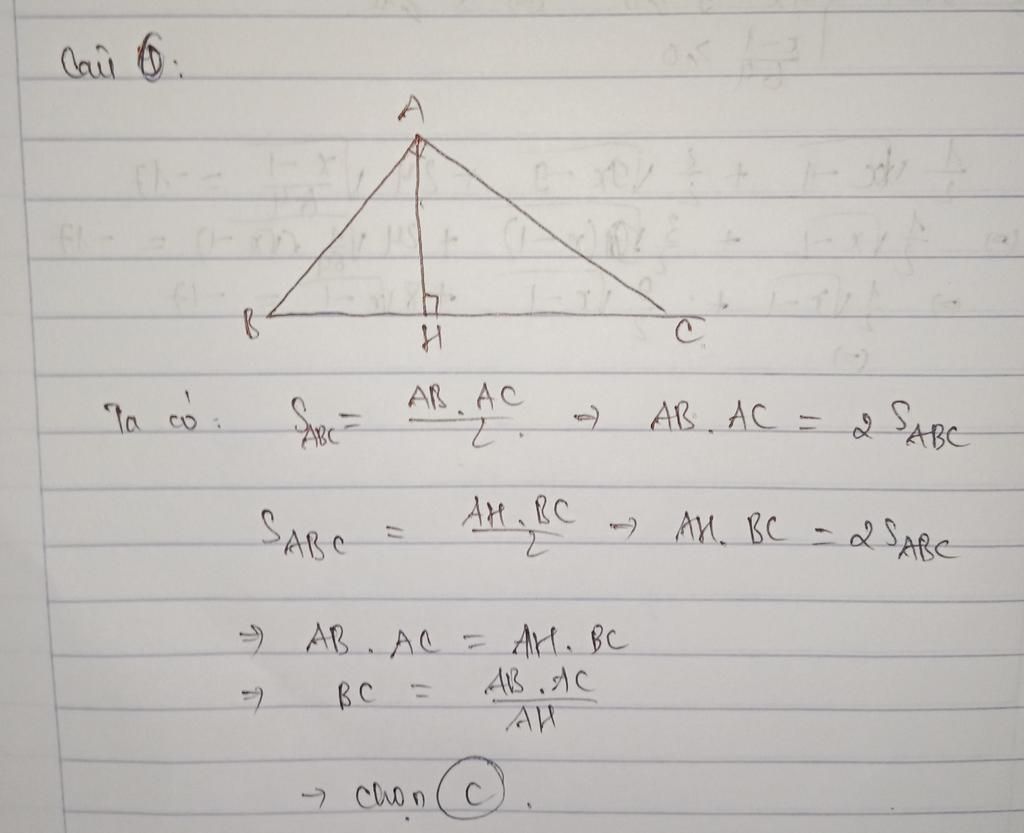 Câu ①:
A
B
H
C
Ta có: S_ABC = AB . AC / 2 . ⇒ AB . AC = 2 S_ABC
S_ABC = AH . BC / 2 ⇒ AH . BC = 2 S_ABC
⇒ AB . AC = AH . BC
⇒ BC = AB . AC / AH
→ chọn C .